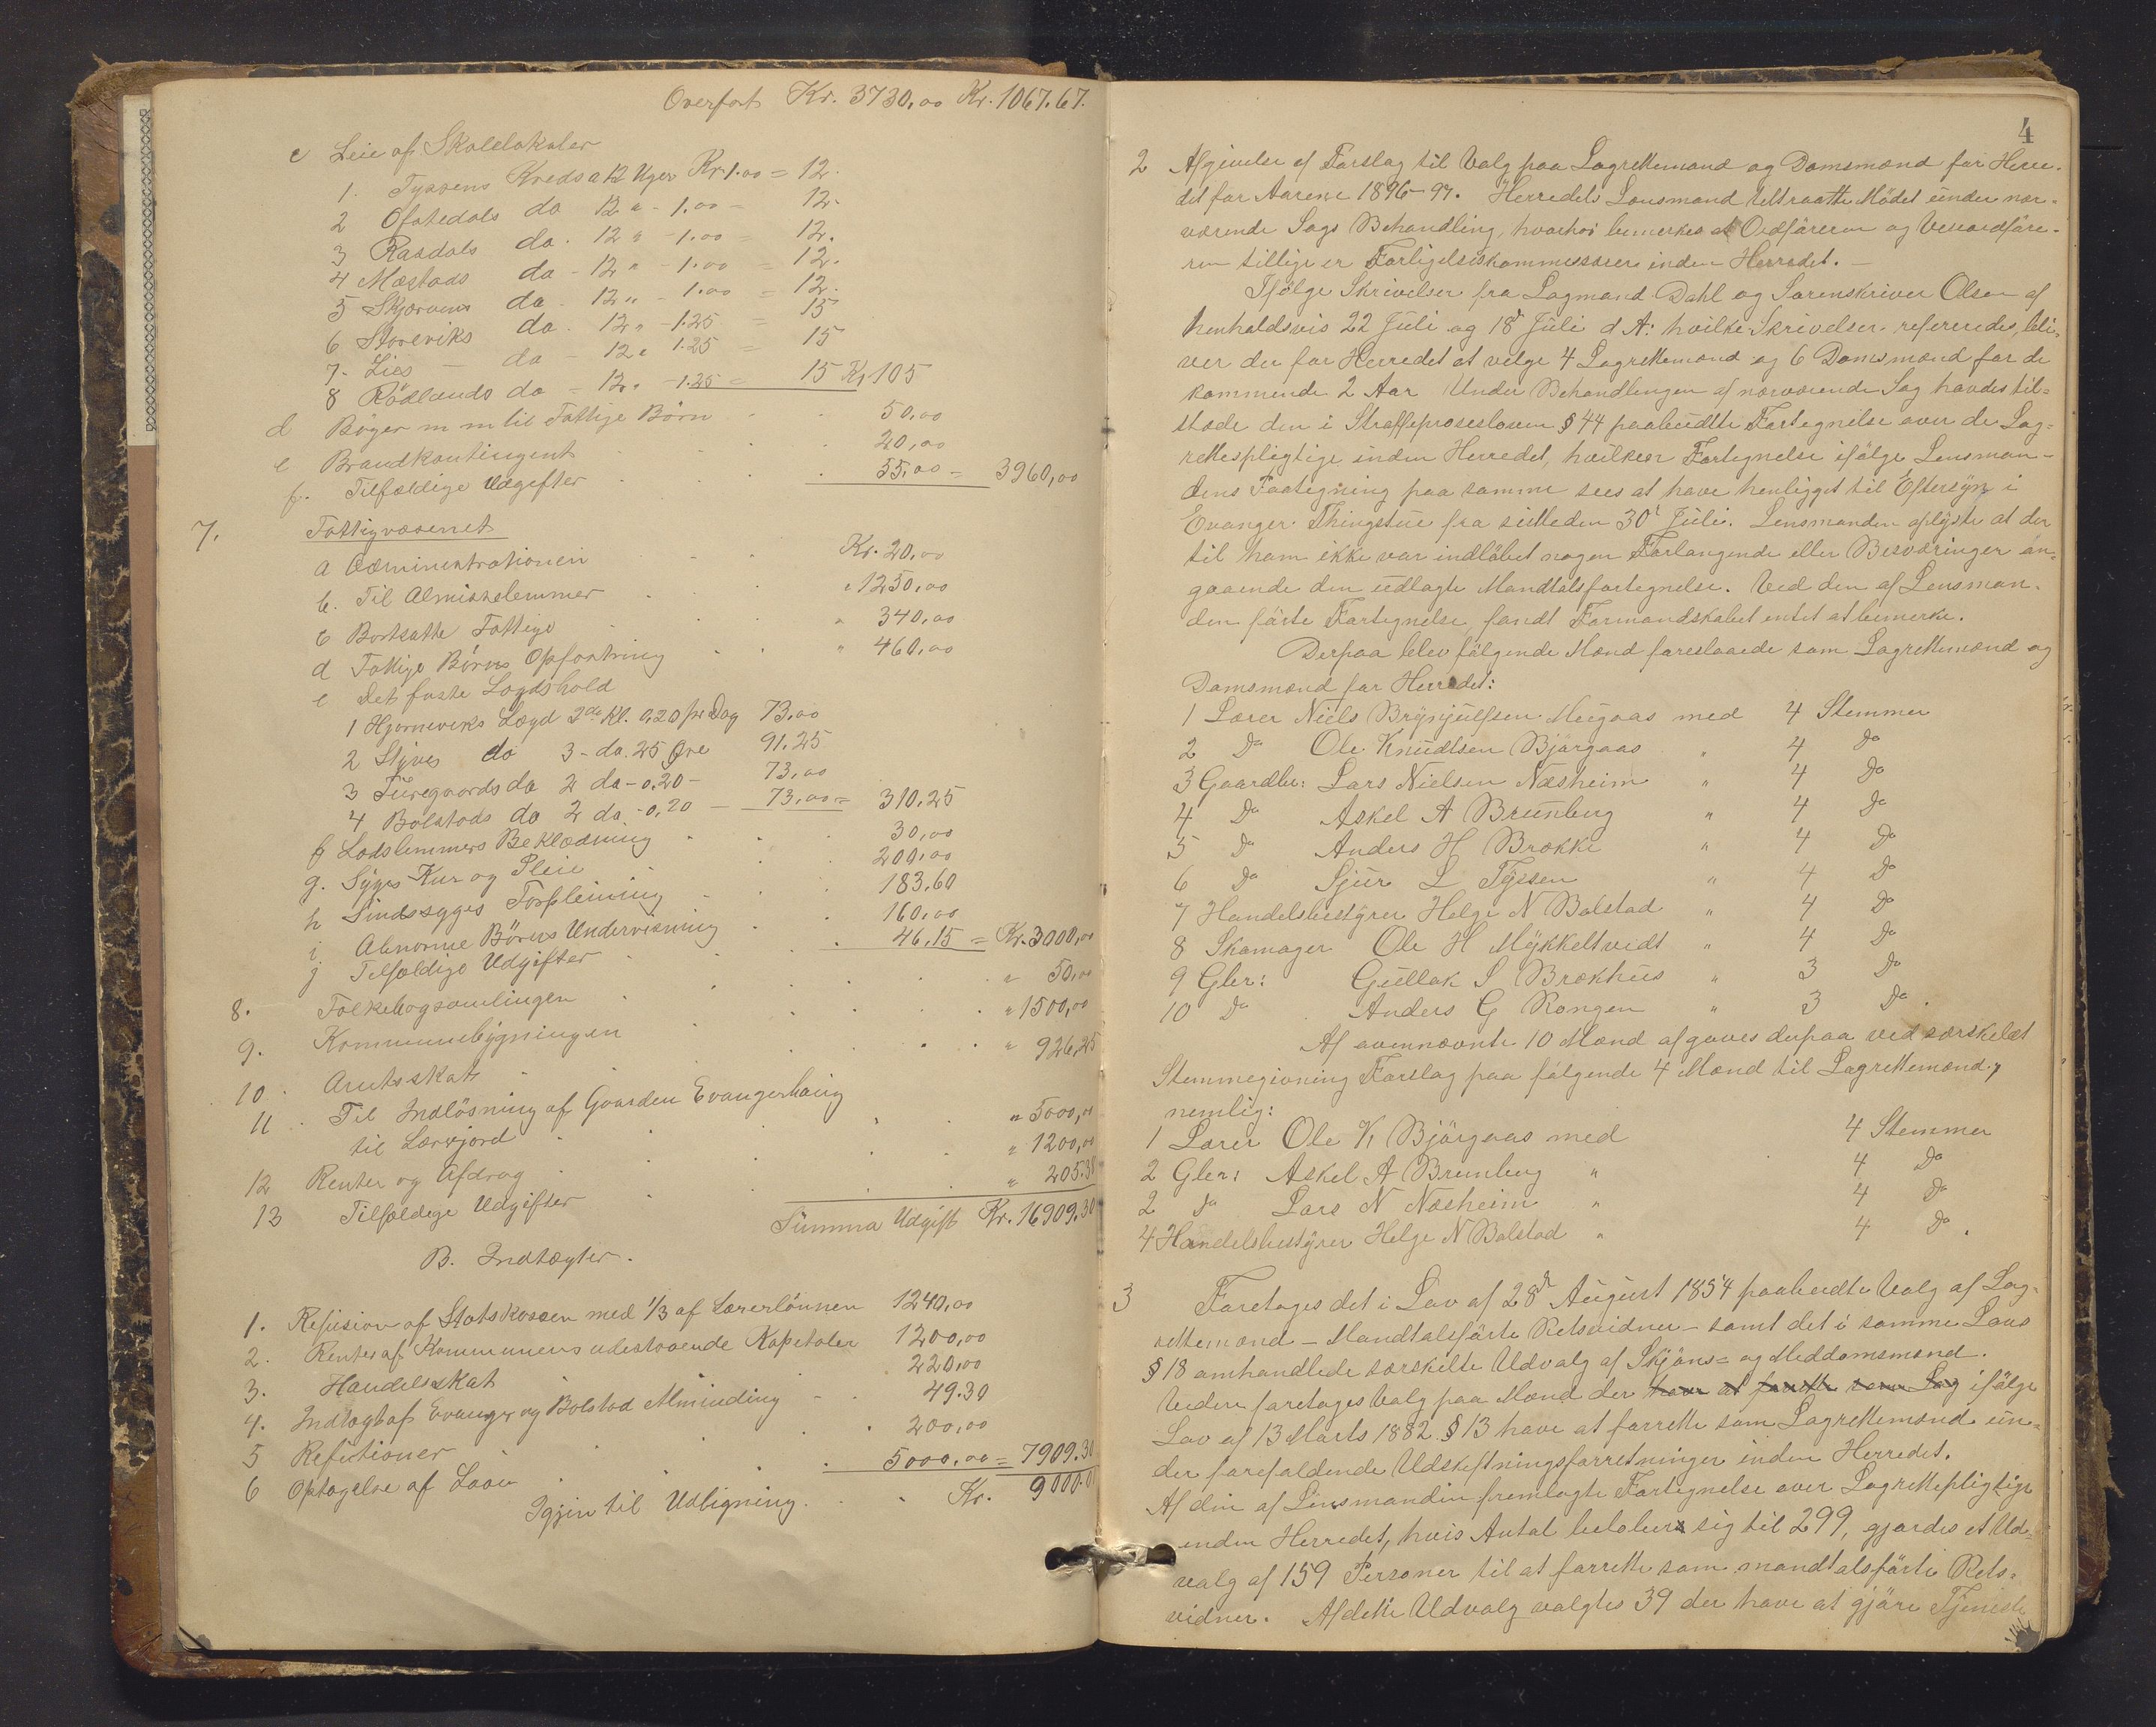 Overført Kr. 3730,00 Kr. 1067.67.
c Leie af Skolelokaler
1. Tyssens Kreds a 12 Uger Kr 1.00 = 12.
2 Ofstedals do 12 " - 1.00 - 12.
3 Rasdals do. 12 " - 1.00 = 12.
4 Mæstads do - 12 " - 1.00 = 12.
5 Skjervens do - 12 " - 1.00 = 12.
6 Storeviks do. 12 " - 1.25 = 15
7. Lies - do - 12 " 1.25 = 15
8 Rödlands do - 12 " - 1.25 = 15 Kr 105
d Bøger m m til Fattige Børn 50,00
e Brandkontingent 20,00
f. Tilfældige Udgifter 55,00 = 3960,00
7. Fattigvæsenet
a Administrationen Kr. 20,00
b. Til Almisselemmer " 1250,00
c Bortsatte Fattige " 340,00
d Fattige Børns Opfostring " 460,00
e Det faste Lægdshold
1 Hjorneviks Lægd 2de Kl. 0,20 pr Dag 73,00
2 Styves do 3 - do. 25 Øre 91.25
3 Türegaards do 2 do - 0,20 - 73,00
4 Bolstads do 2 do. - 0,20 - 73,00 = 310,25
f Lædslemmers Beklædning 30,00
g. Syges Kur og Pleie 200,00
h Sindssyges Forpleining 183.60
i. Abnorme Börns Undervisning 160,00
j Tilfældige Udgifter 46,15 = Kr. 3000,00
8. Folkebogsamlingen " 50,00
9. Kommunebygningen " 1500,00
10. Amtsskat " 926,25
11. Til Indlösning af Gaarden Evangerhaüg
til Lærerjord " 5000,00
12 Renter og Afdrag " 1200,00
13 Tilfældige Udgifter " 205.38
Sümma Udgift Kr. 16909.30
B. Indtægter.
1. Refusion af Statskassen med 1/3 af Lærerlönnen 1240,00
2. Renter af Kommunens udestaaende Kapitaler 1200,00
3. Handelsskat 220,00
4. Indtægt af Evanger og Bolstad Alminding 49.30
5 Refutioner 200,00
6 Optagelse af Laan 5000,00 = 7909.30
Igjen til Udligning. Kr. 9000.00
4
2 Afgivelse af Forslag til Valg paa Lagrettemænd og Domsmænd for Herre-
det for Aarene 1896-97. Herredets Lensmand tiltraatte Mödet ünder nær-
værende Sags Behandling, hvorhos bemerkes at Ordföreren og Viceordföre-
ren tillige er Forligelseskommissærer inden Herredet. -
Ifölge Skrivelser fra Lagmand Dahl og Sorenskriver Olsen af
henholdsvis 22 Jüli og 18de Jüli d A: hvilke Skrivelser refereredes, bli-
ver der for Herredet at velge 4 Lagrettemænd og 6 Domsmænd for de
kommende 2 Aar. Under Behandlingen af nærværende Sag havdes til-
stede den i Straffeprosesloven § 44 paabüdte Fortegnelse over de Lag-
rettespligtige inden Herredet, hvilken Fortegnelse ifölge Lensman-
dens Paategning paa samme sees at have henligget til Eftersÿn i
Evanger Thingstue fra siütleden 30t Jüli. Lensmanden oplÿste at der
til ham ikke var indlöbet nogen Forlangende eller Besværinger an-
gaaende den üdlagte Mandtalsfortegnelse. Ved den af Lensman-
den förte Fortegnelse fandt Formandskabet intet at bemerke.
Derpaa blev fölgende Mænd foreslaaede som Lagrettemænd og
Domsmænd for Herredet:
1 Lærer Niels Brÿnjülfsen Mügaas med 4 Stemmer
2 Do Ole Knüdtsen Bjørgaas " 4 Do
3 Gaardbr: Lars Nielsen Næsheim " 4 Do
4 Do Askel A Brünborg " 4 Do
5 Do Anders H Brække " 4 Do
6 Do Sjür L Tÿssen " 4 Do
7 Handelsbestÿrer Helge N Bolstad " 4 Do
8 Skomager Ole H Mÿkkeltvedt " 4 Do
9 Gbr: Güllak S Brækhüs " 3 Do
10 Do Anders G Rongen " 3 Do.
Af ovennævnte 10 Mænd afgaves derpaa ved særskilt
Stemmegivning Forslag paa fölgende 4 Mænd til Lagrettemænd,
nemlig:
1 Lærer Ole K Bjørgaas med 4 Stemmer
2 Gbr: Askel A Brunborg " 4 Do
2 Do Lars N Næsheim " 4 Do
4 Handelsbestÿrer Helge N Bolstad " 4 Do.
3 Foretoges det i Lov af 28de Aügüst 1854 paabudte Valg af Lag-
rettemænd - Mandtalsförte Retsvidner - samt det i samme Lovs
§ 18 omhandlede særskilte Udvalg af Skjöns- og Meddomsmænd.
Videre foretoges Valg paa Mænd der have at forrette som Lag ifölge
Lov af 13 Marts 1882 § 13 have at forrette som Lagrettemænd ün-
der forefaldende Udskiftningsforretninger inden Herredet.
Af den af Lensmanden fremlagte Fortegnelse over Lagrettepligtige
inden Herredet, hvis Antal beløber sig til 299, gjordes et Ud-
valg af 159 Personer til at forrette som mandtalsförte Rets-
vidner. Af dette Udvalg valgtes 39 der have at gjöre Tjeneste